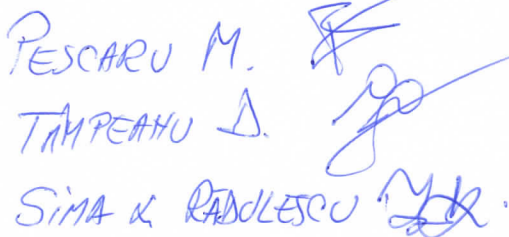 PESCARU M.
TÂMPEANU D.
SIMA & RĂDULESCU